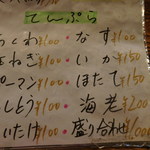 てんぷら
ちくわ ¥100 ・なす ¥100
玉ねぎ ¥100 ・いか ¥150
ピーマン ¥100 ・ほたて ¥150
ししとう ¥100 ・海老 ¥200
しいたけ ¥100 ・盛り合わせ